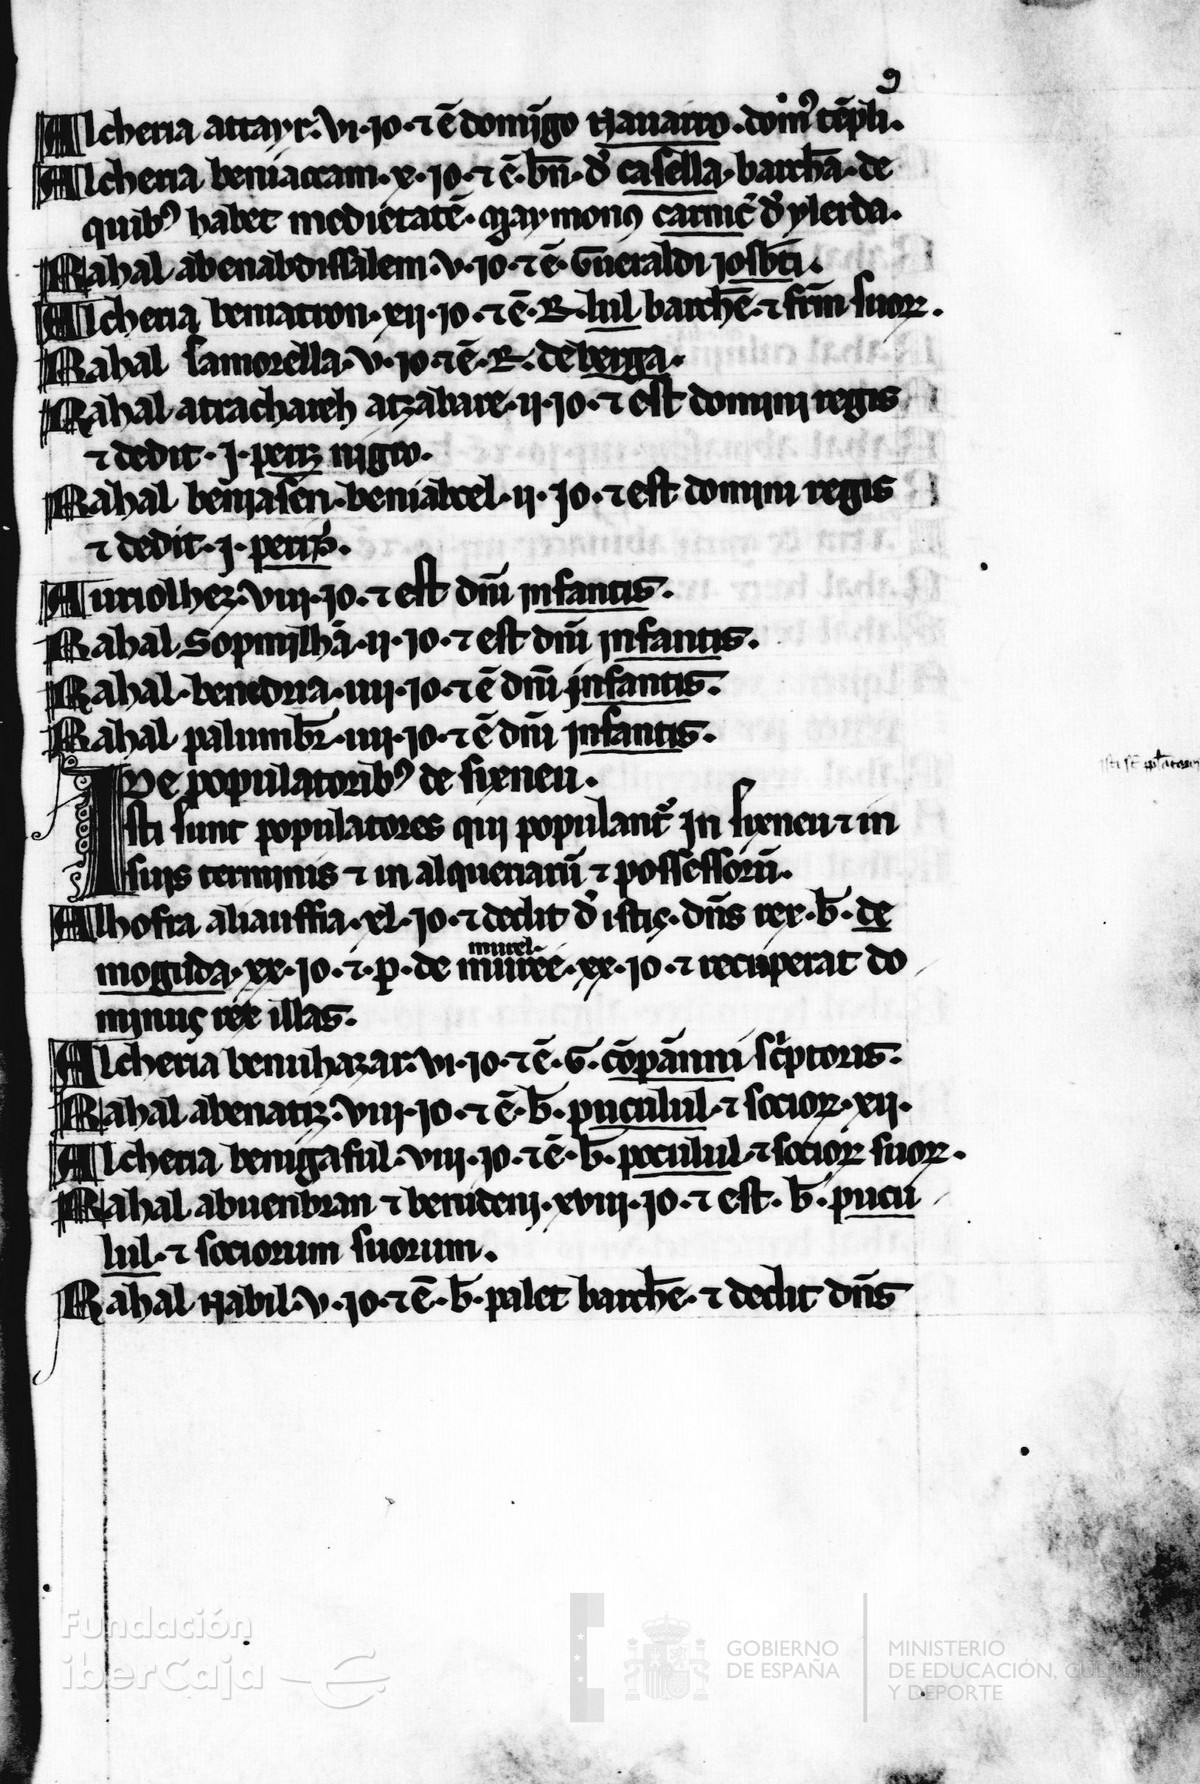 9
Alcheria attayr·vi·io·⁊ ē domīgo nauarro·doīn⁹ tēpli·
Alcheria beniaccam·x·io·⁊ ē·bn̄·d̓ casella·barchā·de
quib⁹ habet medietatē·Maymonꝰ carnic̓ d̓ ylerda·
Rahal abenabdissalem·v·io·⁊ ē·Gueraldi
Alcheria beniatron·xii·io·⁊ ē·R·lul barchē·⁊ frm̄ suoꝝ·
Rahal samorella·v·io·⁊ ē·R·de berga·
Rahal atrachareh atzabare·ii·io·⁊ est domini regis
⁊ dedit·j·petrꝫ nigro·
Rahal beniaseri·beniabcel·ii·Jo·⁊ est domini regis
⁊ dedit·j·
Auriolhez·viii·io·⁊ est dn̄i infantis·
Rahal Sopmilhā·ii·io·⁊ est dn̄i infantis·
Rahal·benedria·iiii·io·⁊ ē dn̄i infantis·
Rahal palumbr̄·iiii·io·⁊ ē dn̄i infantis·
De populatorib⁹ de sixneu·
Isti sunt populatores qui populant᷑ in sixneu ⁊ in
suis terminis ⁊ in alqueriarū ⁊ possessorū·
Alhofra aliauffia·xl·io·⁊ dedit d̓ istis·dn̄s rex·b̄·de
murel·
moguda·xx·io·⁊·p̱·de muree·xx·io·⁊ recuperat do
minus rex illas·
Alcheria benuhazar·vi·io·⁊ ē·G·cōpānni sc̓ptoris·
Rahal abenatiz·viii·io·⁊ ē·b̄·puculul·⁊ socioꝝ·xii·
Alcheria benigaful·viii·io·⁊ ē·b̄·poculul·⁊ socioꝝ suoꝝ·
Rahal abuenbran ⁊ benideni·xviii·io·⁊ est·b̄·pucu
lul·⁊ sociorum suorum·
Rahal nabil·v·io·⁊ ē·b̄·palet barchē·⁊ dedit dn̄s
Fundación
iberCaja
GOBIERNO
DE ESPAÑA
MINISTERIO
DE EDUCACIÓN, CULTURA
Y DEPORTE